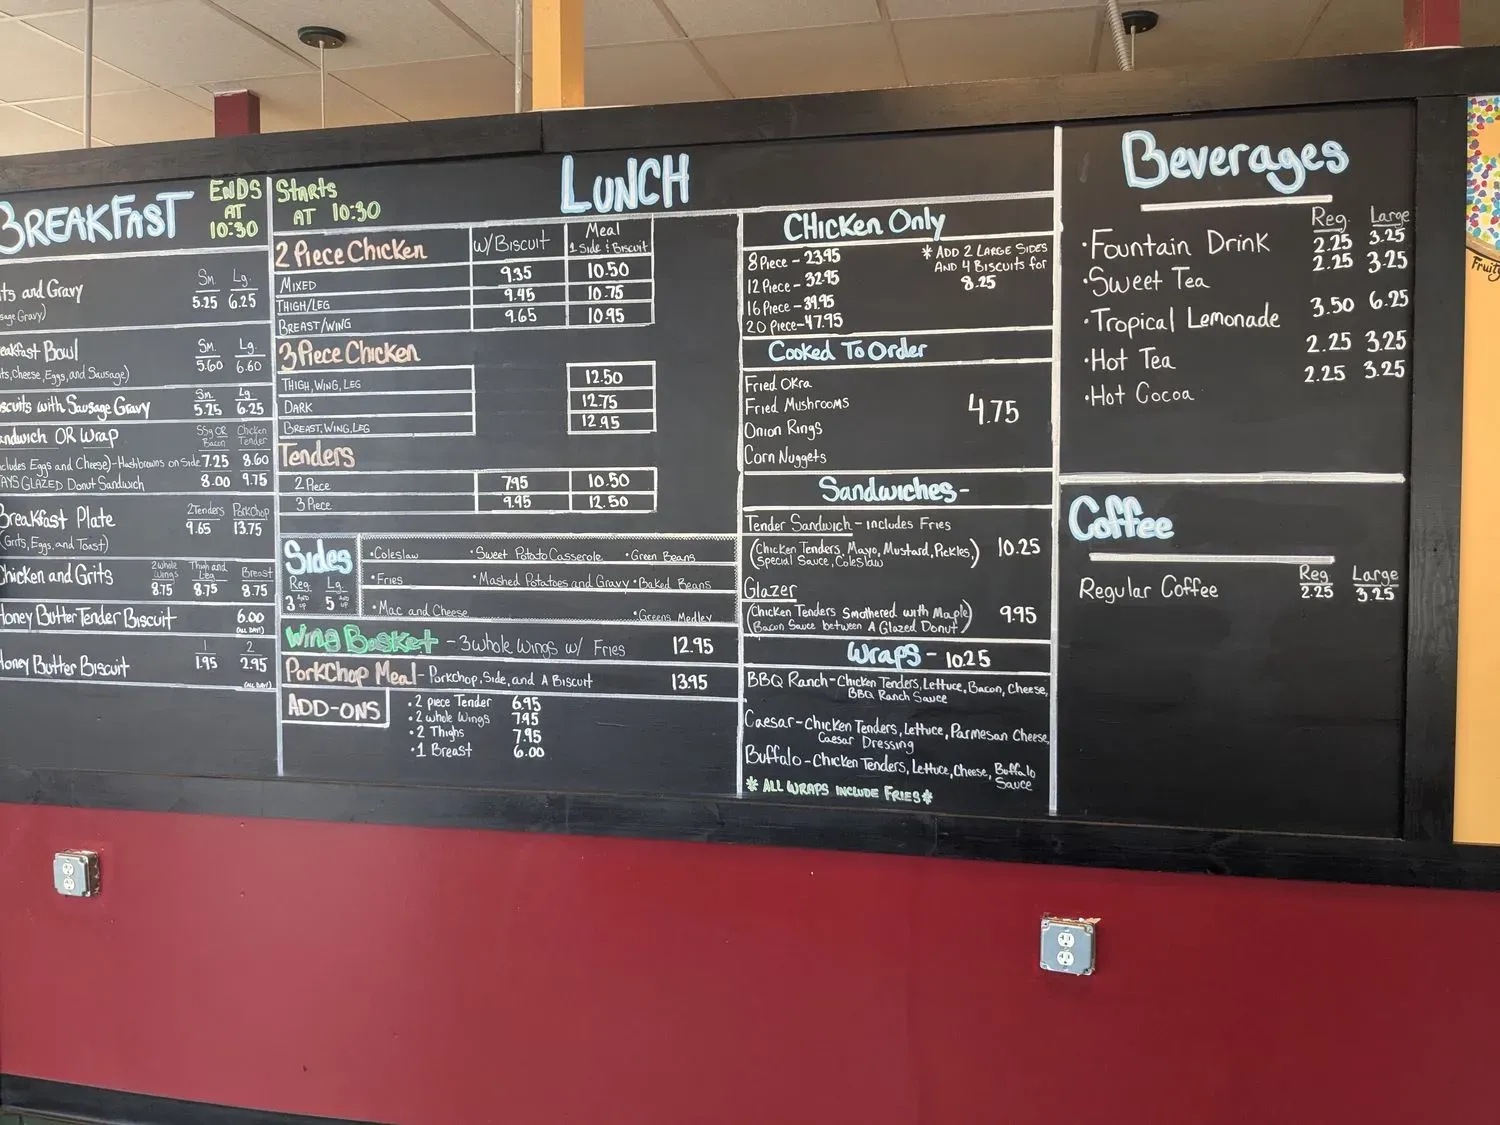 BREAKFAST
ENDS
AT
10:30
Sm. Lg.
ts and Gravy 5.25 6.25
sage Gravy)
eakfast Bowl Sm. Lg.
5.60 6.60
ts, Cheese, Eggs, and Sausage)
Sm. Lg.
scuits with Sausage Gravy 5.25 6.25
ndwich OR Wrap SSg OR Bacon Chicken Tender
cludes Eggs and Cheese)-Hashbrowns on Side 7.25 8.60
AYS GLAZED Donut Sandwich 8.00 9.75
Breakfast Plate 2Tenders PorkChop
9.65 13.75
(Grits, Eggs, and Toast)
Chicken and Grits 2 Whole Wings Thigh and Leg Breast
8.75 8.75 8.75
Honey Butter Tender Biscuit 6.00
(ALL DAY!)
1 2
Honey Butter Biscuit 1.95 2.95
(ALL DAY!)
LUNCH
Starts
AT 10:30
2 Piece Chicken w/Biscuit Meal
1 Side & Biscuit
MIXED 9.35 10.50
THIGH/LEG 9.45 10.75
BREAST/WING 9.65 10.95
3 Piece Chicken
THIGH, WING, LEG 12.50
DARK 12.75
BREAST, WING, LEG 12.95
Tenders
2 Piece 7.95 10.50
3 Piece 9.95 12.50
Sides
Reg. Lg.
3 AND UP 5 AND UP
•Coleslaw •Sweet Potato Casserole •Green Beans
•Fries •Mashed Potatoes and Gravy •Baked Beans
•Mac and Cheese •Greens Medley
Wing Basket - 3 whole Wings w/ Fries 12.95
PorkChop Meal - Porkchop, Side, and A Biscuit 13.95
ADD-ONS
•2 piece Tender 6.95
•2 whole Wings 7.95
•2 Thighs 7.95
•1 Breast 6.00
CHicken Only
8 Piece - 23.95
12 Piece - 32.95
16 Piece - 39.95
20 Piece - 47.95
* ADD 2 LARGE SIDES
AND 4 BISCUITS for
8.25
Cooked To Order
Fried OKra
Fried Mushrooms
Onion Rings
Corn Nuggets
4.75
Sandwiches-
Tender Sandwich - includes Fries
(Chicken Tenders, Mayo, Mustard, Pickles, 10.25
Special Sauce, Coleslaw)
Glazer
(Chicken Tenders Smothered with Maple 9.95
Bacon Sauce between A Glazed Donut)
Wraps - 10.25
BBQ Ranch-Chicken Tenders, Lettuce, Bacon, Cheese,
BBQ Ranch Sauce
Caesar-Chicken Tenders, Lettuce, Parmesan Cheese,
Caesar Dressing
Buffalo-Chicken Tenders, Lettuce, Cheese, Buffalo
Sauce
* ALL WRAPS INCLUDE FRIES *
Beverages
Reg. Large
•Fountain Drink 2.25 3.25
•Sweet Tea 2.25 3.25
•Tropical Lemonade 3.50 6.25
•Hot Tea 2.25 3.25
•Hot Cocoa 2.25 3.25
Coffee
Reg Large
Regular Coffee 2.25 3.25
Fruity